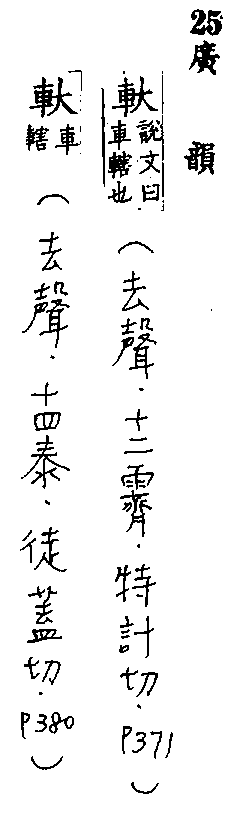 25廣韻
軑說文曰車轄也(去聲.十二霽.特計切.P371)
軑車轄(去聲.十四泰.徒蓋切.P380)